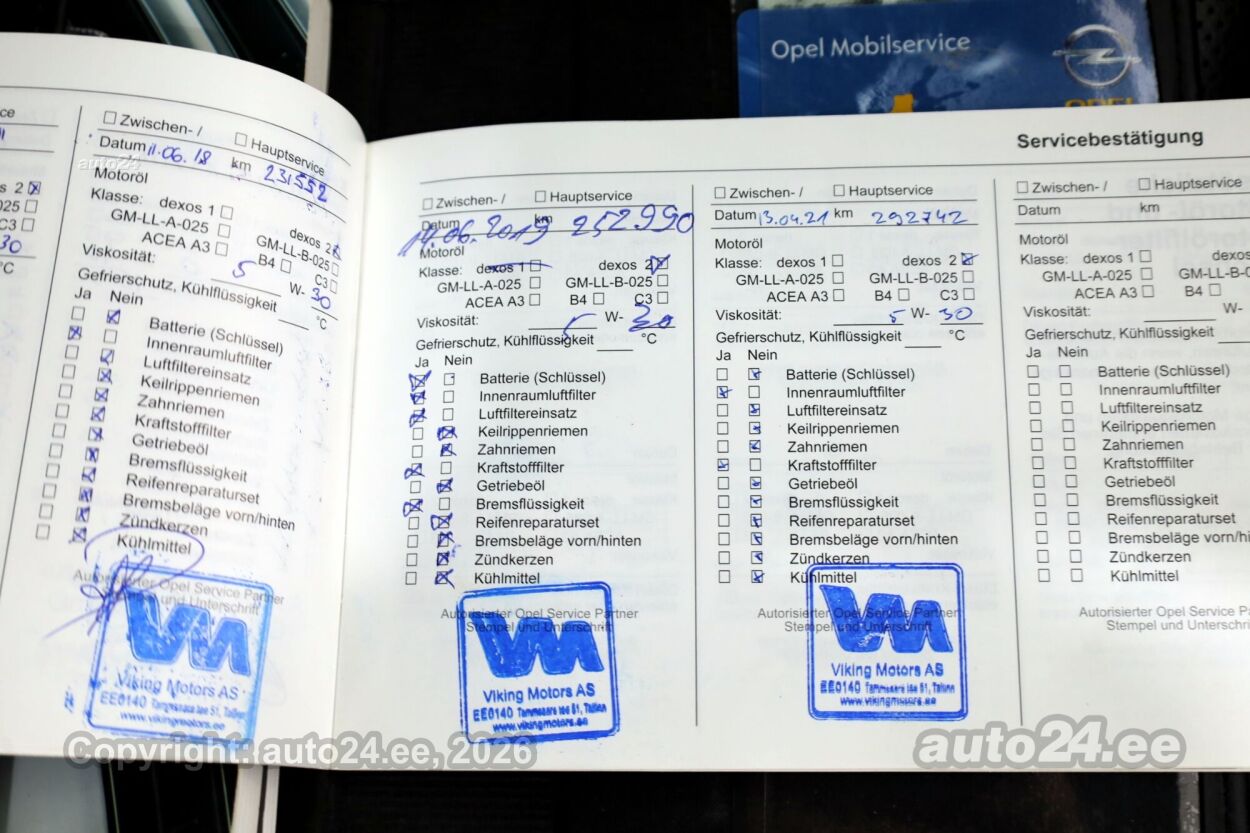 Opel Mobilservice
OPEL
Servicebestätigung
Zwischen- / Hauptservice
Datum 11.06.18 km 231552
Motoröl
Klasse: dexos 1 dexos 2
GM-LL-A-025 GM-LL-B-025
ACEA A3 B4 C3
Viskosität: 5 W- 30
Gefrierschutz, Kühlflüssigkeit °C
Ja Nein
Batterie (Schlüssel)
Innenraumluftfilter
Luftfiltereinsatz
Keilrippenriemen
Zahnriemen
Kraftstofffilter
Getriebeöl
Bremsflüssigkeit
Reifenreparaturset
Bremsbeläge vorn/hinten
Zündkerzen
Kühlmittel
Autorisierter Opel Service Partner
Stempel und Unterschrift
Viking Motors AS
EE0140 Tammsaare tee 51, Tallinn
www.vikingmotors.ee
Zwischen- / Hauptservice
Datum km
.06.2019 252990
Motoröl
Klasse: dexos 1 dexos 2
GM-LL-A-025 GM-LL-B-025
ACEA A3 B4 C3
Viskosität: 5 W- 30
Gefrierschutz, Kühlflüssigkeit °C
Ja Nein
Batterie (Schlüssel)
Innenraumluftfilter
Luftfiltereinsatz
Keilrippenriemen
Zahnriemen
Kraftstofffilter
Getriebeöl
Bremsflüssigkeit
Reifenreparaturset
Bremsbeläge vorn/hinten
Zündkerzen
Kühlmittel
Autorisierter Opel Service Partner
Stempel und Unterschrift
Viking Motors AS
EE0140 Tammsaare tee 51, Tallinn
www.vikingmotors.ee
Zwischen- / Hauptservice
Datum 13.04.21 km 292742
Motoröl
Klasse: dexos 1 dexos 2
GM-LL-A-025 GM-LL-B-025
ACEA A3 B4 C3
Viskosität: 5 W- 30
Gefrierschutz, Kühlflüssigkeit °C
Ja Nein
Batterie (Schlüssel)
Innenraumluftfilter
Luftfiltereinsatz
Keilrippenriemen
Zahnriemen
Kraftstofffilter
Getriebeöl
Bremsflüssigkeit
Reifenreparaturset
Bremsbeläge vorn/hinten
Zündkerzen
Kühlmittel
Autorisierter Opel Service Partner
Stempel und Unterschrift
Viking Motors AS
EE0140 Tammsaare tee 51, Tallinn
www.vikingmotors.ee
Zwischen- / Hauptservice
Datum km
Motoröl
Klasse: dexos 1 dexos
GM-LL-A-025 GM-LL-B-0
ACEA A3 B4
Viskosität: W-
Gefrierschutz, Kühlflüssigkeit
Ja Nein
Batterie (Schlüssel)
Innenraumluftfilter
Luftfiltereinsatz
Keilrippenriemen
Zahnriemen
Kraftstofffilter
Getriebeöl
Bremsflüssigkeit
Reifenreparaturset
Bremsbeläge vorn/hinte
Zündkerzen
Kühlmittel
Autorisierter Opel Service Pa
Stempel und Unterschri
auto24
Copyright: auto24.ee, 2026
auto24.ee